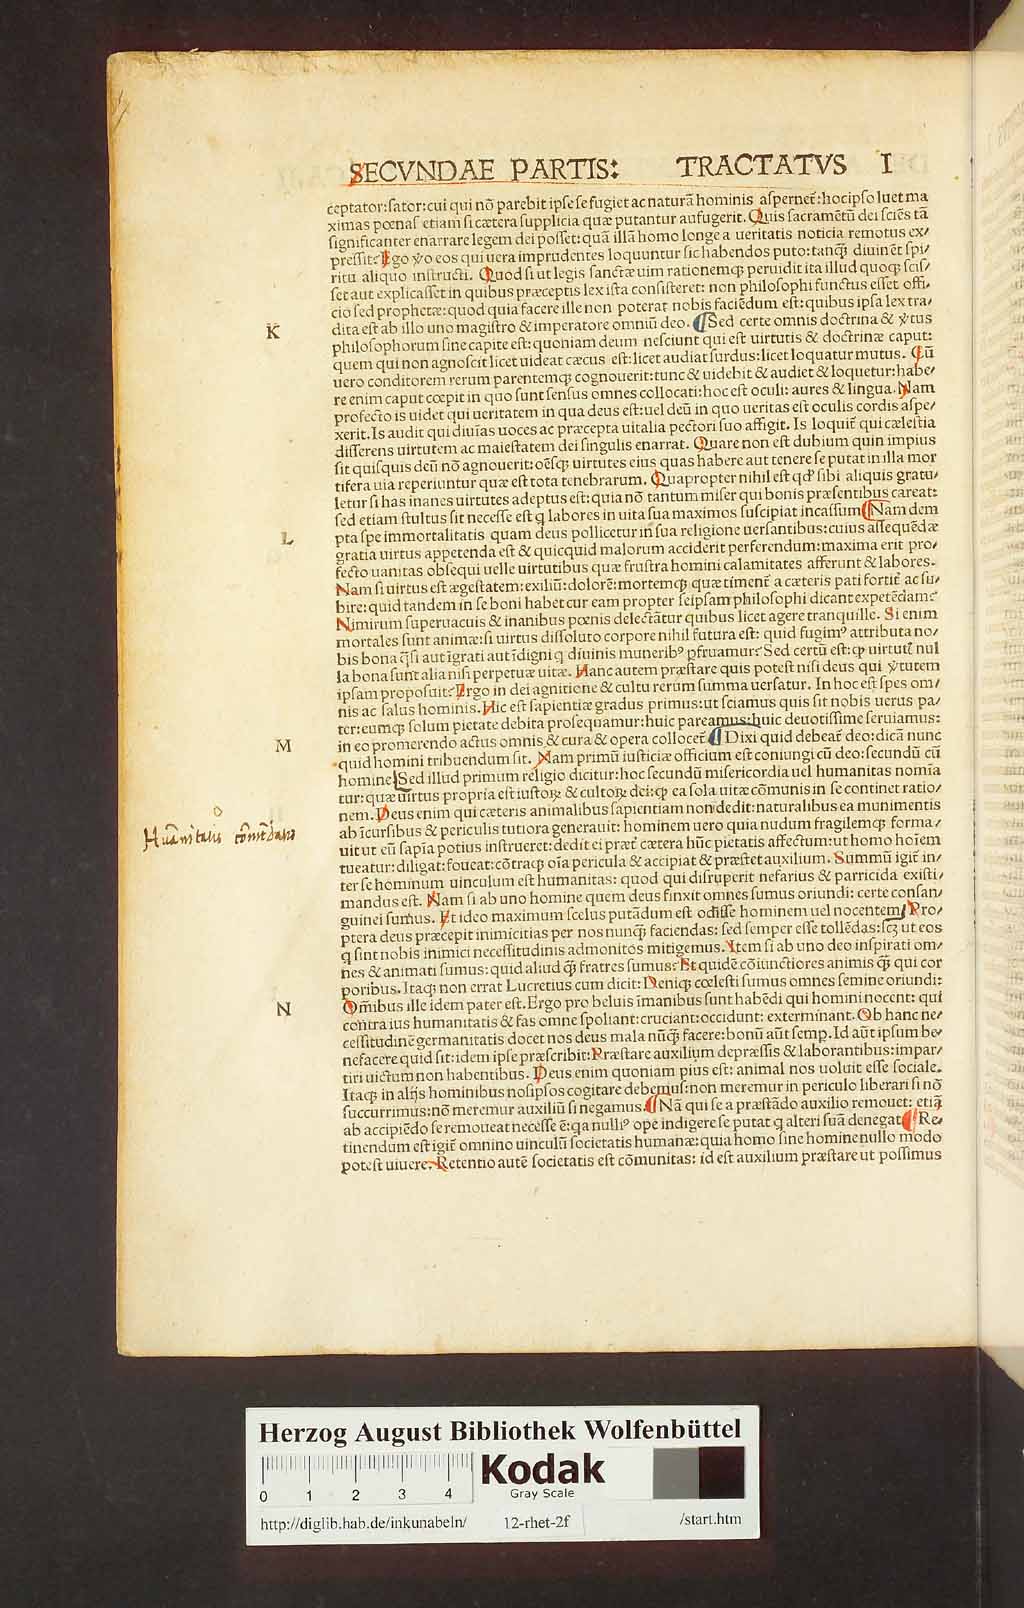 SECVNDAE PARTIS: TRACTATVS I
ceptator:lator:cui qui nō parebit ipse se fugiet ac naturā hominis aspernet̃:hoc ipso luet ma
ximas pœnas etiam si cætera supplicia quæ putantur aufugerit. Quis sacramētū dei sciēs tā
significanter enarrare legem dei posset:quā illā homo longe a ueritatis noticia remotus ex/
pressit? Ego ṽo eos qui uera imprudentes loquuntur sic habendos puto:tanq̃ diuinēt spi/
ritu aliquo instructi. Quod si ut legis sanctæ uim rationemq; peruidit ita illud quoq; scis/
set aut explicasset in quibus præceptis lex ista consisteret: non philosophi functus esset offi/
cio sed prophetæ:quod quia facere ille non poterat nobis faciēdum est:quibus ipsa lex tra/
K dita est ab illo uno magistro & imperatore omniū deo. ¶Sed certe omnis doctrina & ṽtus
philosophorum sine capite est: quoniam deum nesciunt qui est uirtutis & doctrinæ caput:
quem qui non agnoscit licet uideat cæcus est:licet audiat surdus:licet loquatur mutus. Cū
uero conditorem rerum parentemq; cognouerit:tunc & uidebit & audiet & loquetur:habe/
re enim caput cœpit in quo sunt sensus omnes collocati:hoc est oculi: aures & lingua. Nam
profecto is uidet qui ueritatem in qua deus est:uel deū in quo ueritas est oculis cordis aspe/
xerit. Is audit qui diuīas uoces ac præcepta uitalia pectori suo affigit. Is loquit̃ qui cælestia
differens uirtutem ac maiestatem dei singulis enarrat. Quare non est dubium quin impius
sit quisquis deū nō agnouerit:oēsq; uirtutes eius quas habere aut tenere se putat in illa mor
tifera uia reperiuntur quæ est tota tenebrarum. Quapropter nihil est qd̃ sibi aliquis gratu/
letur si has inanes uirtutes adeptus est: quia nō tantum miser qui bonis præsentibus careat:
sed etiam stultus sit necesse est q labores in uita sua maximos suscipiat incassum ¶Nam dem
L pta spe immortalitatis quam deus pollicetur in sua religione uersantibus:cuius assequēdæ
gratia uirtus appetenda est & quicquid malorum acciderit perferendum:maxima erit pro/
fecto uanitas obsequi uelle uirtutibus quæ frustra homini calamitates afferunt & labores.
Nam si uirtus est ægestatem:exiliū:dolorē:mortemq; quæ timent̃ a cæteris pati fortit̃ ac su/
bire:quid tandem in se boni habet cur eam propter seipsam philosophi dicant expetēdam?
Nimirum superuacuis & inanibus pœnis delectātur quibus licet agere tranquille. Si enim
mortales sunt animæ:si uirtus dissoluto corpore nihil futura est: quid fugim⁹ attributa no/
bis bona q̃si aut īgrati aut īdigni q diuinis munerib⁹ pfruamur? Sed certū est:q; uirtuti nul
la bona sunt alia nisi perpetuæ uitæ. Hanc autem præstare quis potest nisi deus qui ṽtutem
ipsam proposuit? Ergo in dei agnitione & cultu rerum summa uersatur. In hoc est spes om/
nis ac salus hominis. Hic est sapientiæ gradus primus:ut sciamus quis sit nobis uerus pa/
ter:eumq; solum pietate debita prosequamur:huic pareamus:huic deuotissime seruiamus:
M in eo promerendo actus omnis & cura & opera collocet̃ ¶Dixi quid debeat̃ deo:dicā nunc
quid homini tribuendum sit. Nam primū iusticiæ officium est coniungi cū deo:secundū cū
homine Sed illud primum religio dicitur: hoc secundū misericordia uel humanitas nomīa
tur: quæ uirtus propria est iustoꝝ & cultoꝝ dei:q; ea sola uitæ cōmunis in se continet ratio/
nem. Deus enim qui cæteris animalibus sapientiam non dedit:naturalibus ea munimentis
ab īcursibus & periculis tutiora generauit: hominem uero quia nudum fragilemq; forma/
uit ut eū sapīa potius instrueret:dedit ei præt̃ cætera hūc pietatis affectum:ut homo hoīem
tueatur:diligat:foueat:cōtraq; oīa pericula & accipiat & præstet auxilium. Summū igit̃ in/
ter se hominum uinculum est humanitas: quod qui disruperit nefarius & parricida existi/
mandus est. Nam si ab uno homine quem deus finxit omnes sumus oriundi: certe consan/
guinei sumus. Et ideo maximum scelus putādum est odisse hominem uel nocentem. Pro/
ptera deus præcepit inimicitias per nos nunq̃ faciendas: sed semper esse tollēdas:scz ut eos
q sint nobis inimici necessitudinis admonitos mitigemus. Item si ab uno deo inspirati om/
nes & animati sumus:quid aliud q̃ fratres sumus? Et quidē cōiunctiores animis q̃ qui cor
poribus. Itaq; non errat Lucretius cum dicit: Deniq; cœlesti sumus omnes semine oriundi:
N Omībus ille idem pater est. Ergo pro beluis īmanibus sunt habēdi qui homini nocent: qui
contra ius humanitatis & fas omne spoliant:cruciant:occidunt: exterminant. Ob hanc ne/
cessitudinē germanitatis docet nos deus mala nūq̃ facere: bonū aūt semp. Id aūt ipsum be/
nefacere quid sit:idem ipse præscribit:Præstare auxilium depræssis & laborantibus:impar/
tiri uictum non habentibus. Deus enim quoniam pius est: animal nos uoluit esse sociale.
Itaq; in alijs hominibus nosipsos cogitare debemus:non meremur in periculo liberari si nō
succurrimus:nō meremur auxiliū si negamus.¶Nā qui se a præstādo auxilio remouet: etiā
ab accipiēdo se remoueat necesse ē:qa nulli⁹ opē indigere se putat q alteri suā denegat ¶Re/
tinendum est igit̃ omnino uinculū societatis humanæ:quia homo sine homine nullo modo
potest uiuere. Retentio autē societatis est cōmunitas: id est auxilium præstare ut possimus
Herzog August Bibliothek Wolfenbüttel
0 1 2 3 4
Kodak
Gray Scale
http://diglib.hab.de/inkunabeln/ 12-rhet-2f /start.htm